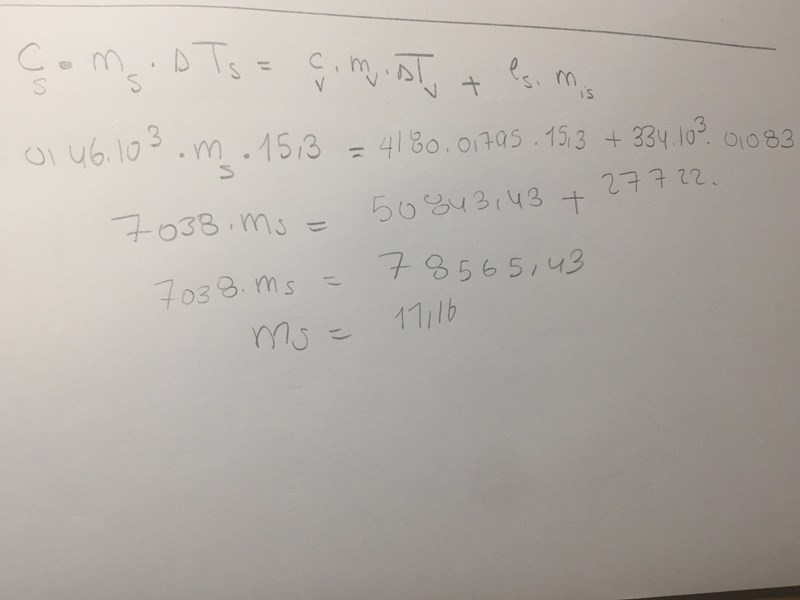 C_s · m_s · ΔT_s = c_v · m_v · ΔT_v + l_s · m_is
0,46·10³ · m_s · 15,3 = 4180 · 0,795 · 15,3 + 334·10³ · 0,083
7038 · ms = 50843,43 + 27722.
7038 · ms = 78565,43
ms = 11,16